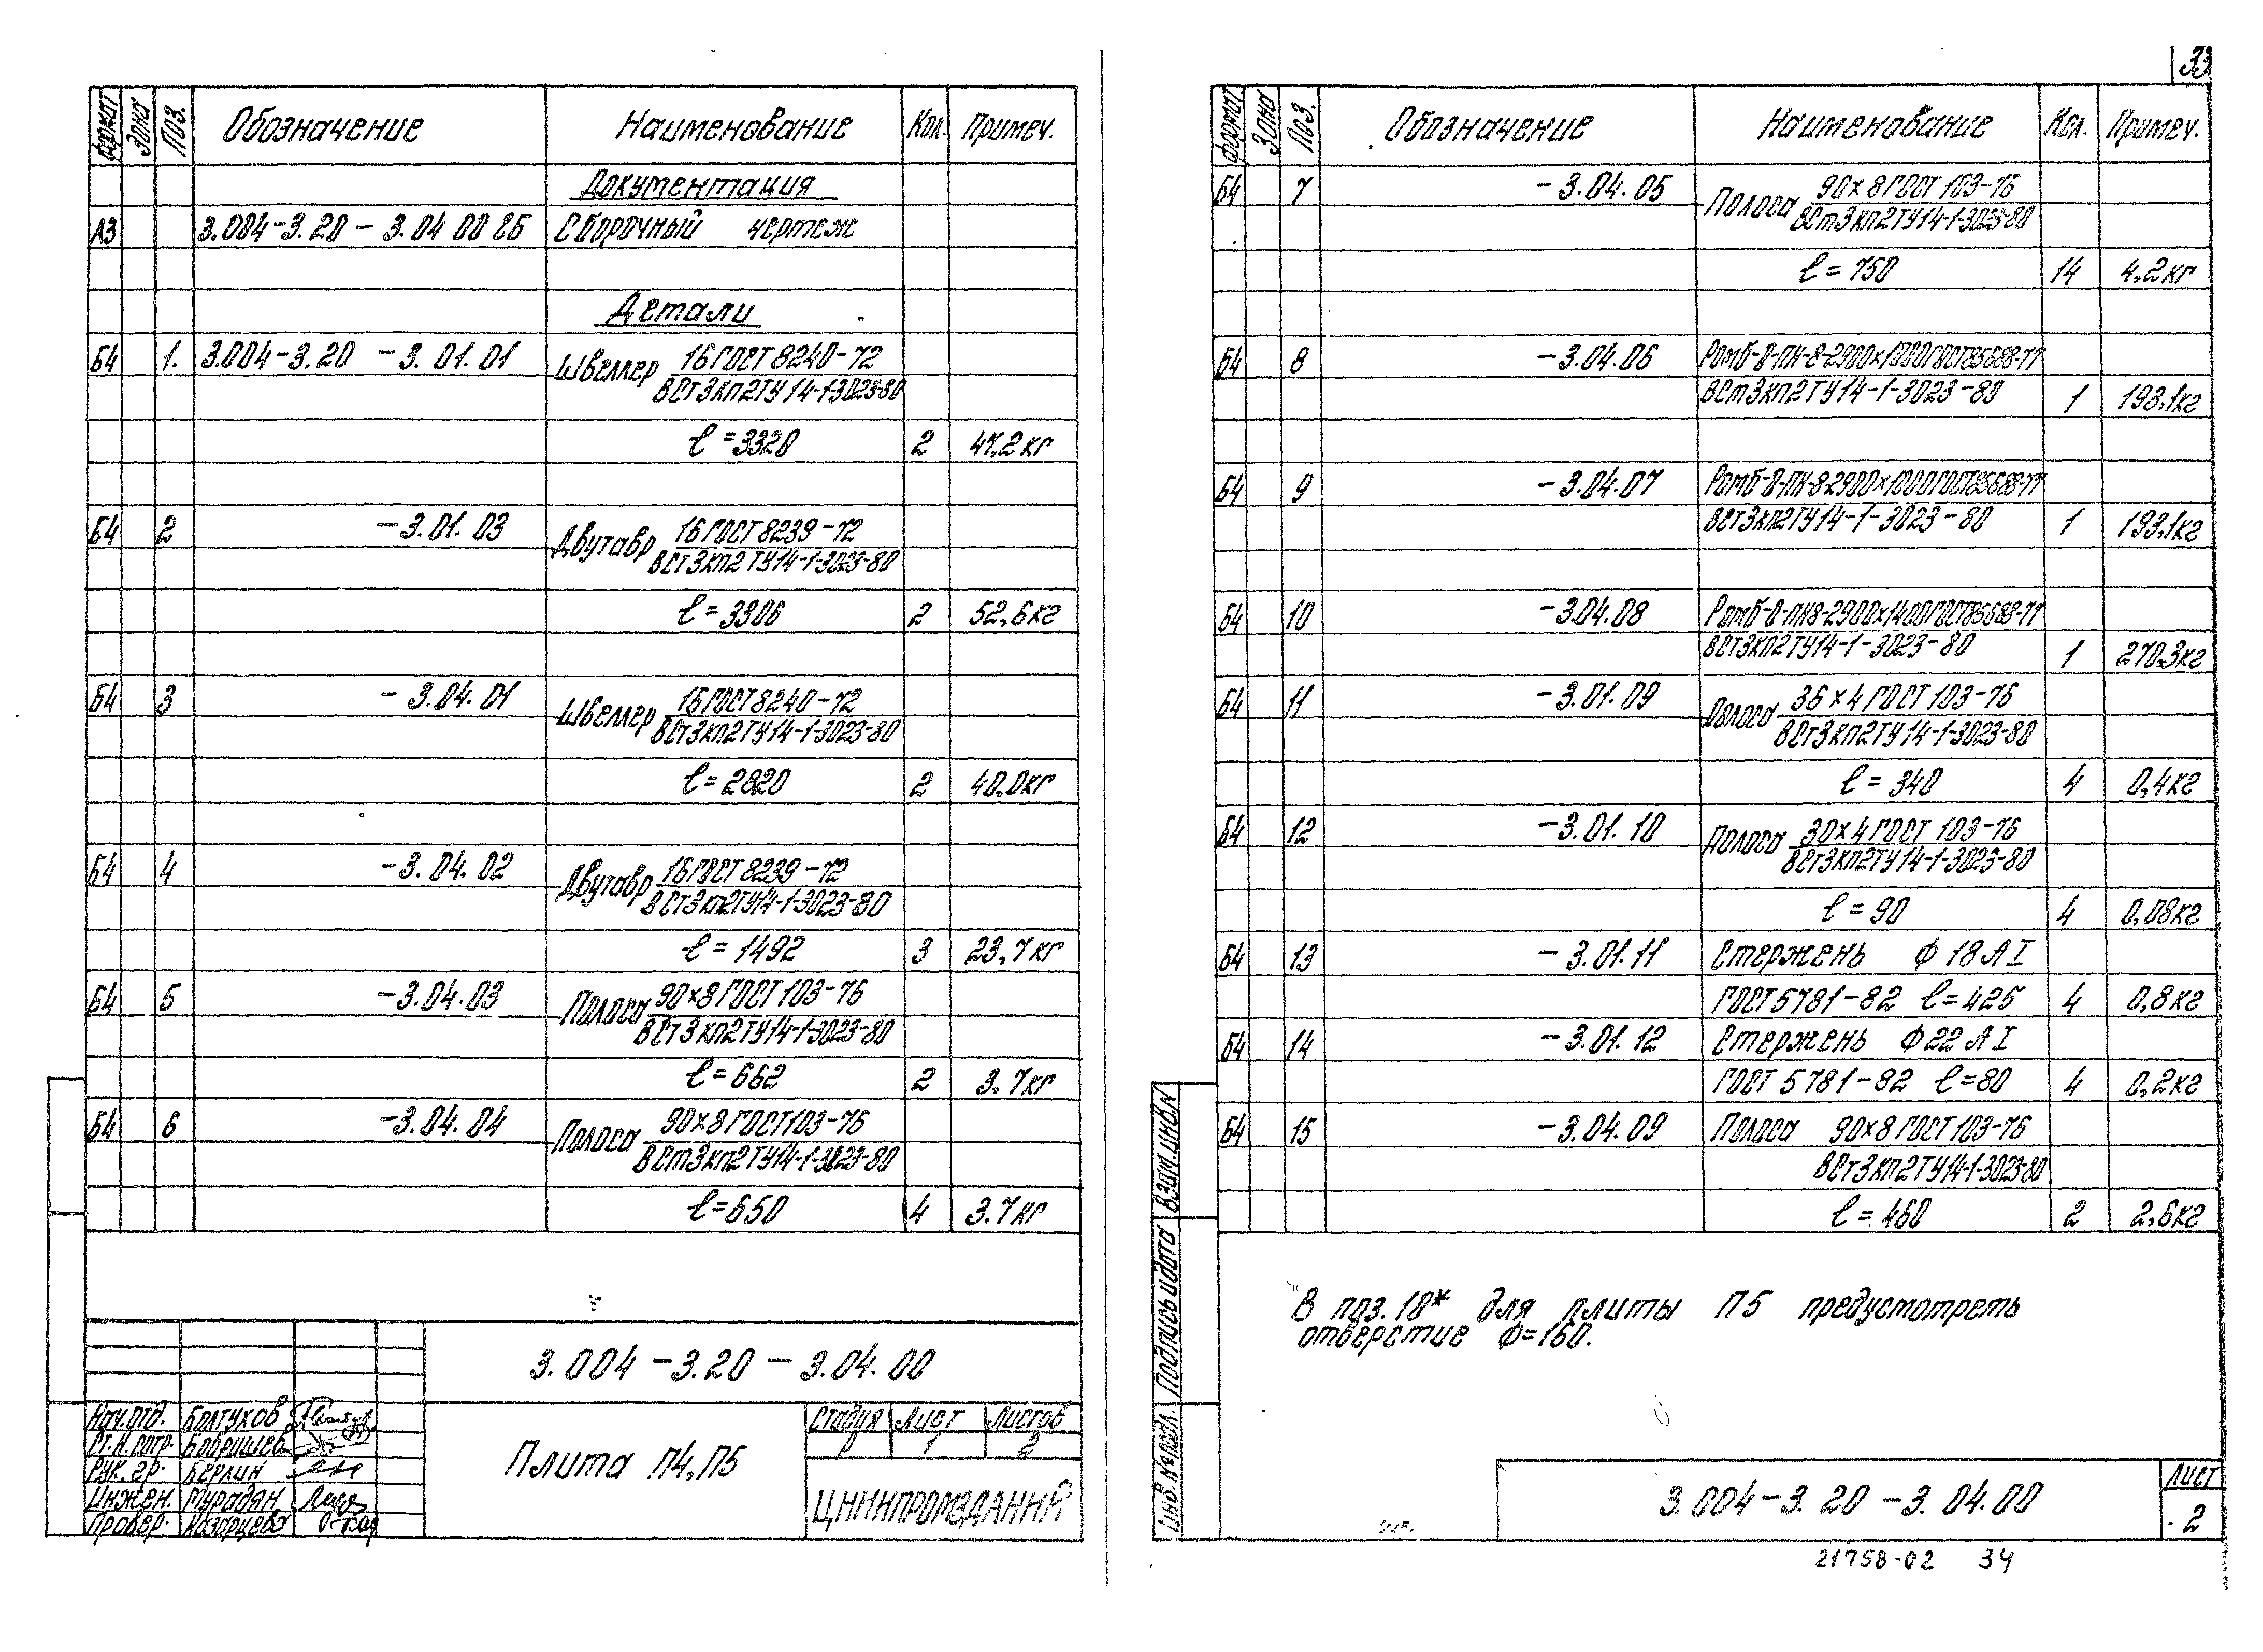 формат Зона Поз. Обозначение Наименование Кол. Примеч.
Документация
А3 3.004-3.20 - 3.04 00 СБ Сборочный чертеж
Детали
Б4 1. 3.004-3.20 - 3.01.01 Швеллер 16 ГОСТ 8240-72
ВСт3кп2 ТУ 14-1-3023-80
ℓ=3320 2 47,2кг
Б4 2 -3.01.03 Двутавр 16 ГОСТ 8239-72
ВСт3кп2 ТУ14-1-3023-80
ℓ=3306 2 52,6кг
Б4 3 -3.04.01 Швеллер 16 ГОСТ 8240-72
ВСт3кп2 ТУ14-1-3023-80
ℓ=2820 2 40.0кг
Б4 4 -3.04.02 Двутавр 16 ГОСТ 8239-72
ВСт3кп2ТУ14-1-3023-80
ℓ=1492 3 23,7кг
Б4 5 -3.04.03 Полоса 90×8 ГОСТ 103-76
ВСт3кп2ТУ14-1-3023-80
ℓ=662 2 3.7кг
Б4 6 -3.04.04 Полоса 90×8 ГОСТ103-76
ВСт3кп2ТУ14-1-3023-80
ℓ=650 4 3.7кг
3.004-3.20-3.04.00
Нач.отд. Болтухов
Бобришев
Рук. гр. Берлин
Инжен. Мурадян
Провер. Казарцева
Плита П4,П5
Стадия Лист Листов
Р 1 2
ЦНИИПРОМЗДАНИЙ
33
формат Зона Поз. Обозначение Наименование Кол. Примеч.
Б4 7 -3.04.05 Полоса 90×8 ГОСТ 103-76
ВСт3кп2ТУ14-1-3023-80
ℓ=750 14 4,2кг
Б4 8 -3.04.06 Ромб-О-ПН-8-2900×1000ГОСТ8568-77
ВСт3кп2ТУ14-1-3023-80 1 193,1кг
Б4 9 -3.04.07 Ромб-О-ПН-8-2900×1000ГОСТ8568-77
ВСт3кп2ТУ14-1-3023-80 1 193,1кг
Б4 10 -3.04.08 Ромб-О-ПН8-2900×1400ГОСТ8568-77
ВСт3кп2ТУ14-1-3023-80 1 270.3кг
Б4 11 -3.01.09 Полоса 36×4 ГОСТ 103-76
ВСт3кп2ТУ14-1-3023-80
ℓ=340 4 0,4кг
Б4 12 -3.01.10 Полоса 30×4 ГОСТ 103-76
ВСт3кп2ТУ14-1-3023-80
ℓ=90 4 0,08кг
Б4 13 -3.01.11 Стержень Ф 18 А I
ГОСТ5781-82 ℓ=425 4 0,8кг
Б4 14 -3.01.12 Стержень Ф22 А I
ГОСТ 5781-82 ℓ=80 4 0,2кг
Б4 15 -3.04.09 Полоса 90×8 ГОСТ 103-76
ВСт3кп2ТУ14-1-3023-80
ℓ=460 2 2,6кг
В поз. 10* для плиты П5 предусмотреть
отверстие Ф=160.
Взам.инв.N
Подпись и дата
Инв.№подл.
3.004-3.20-3.04.00
Лист
2
21758-02 34